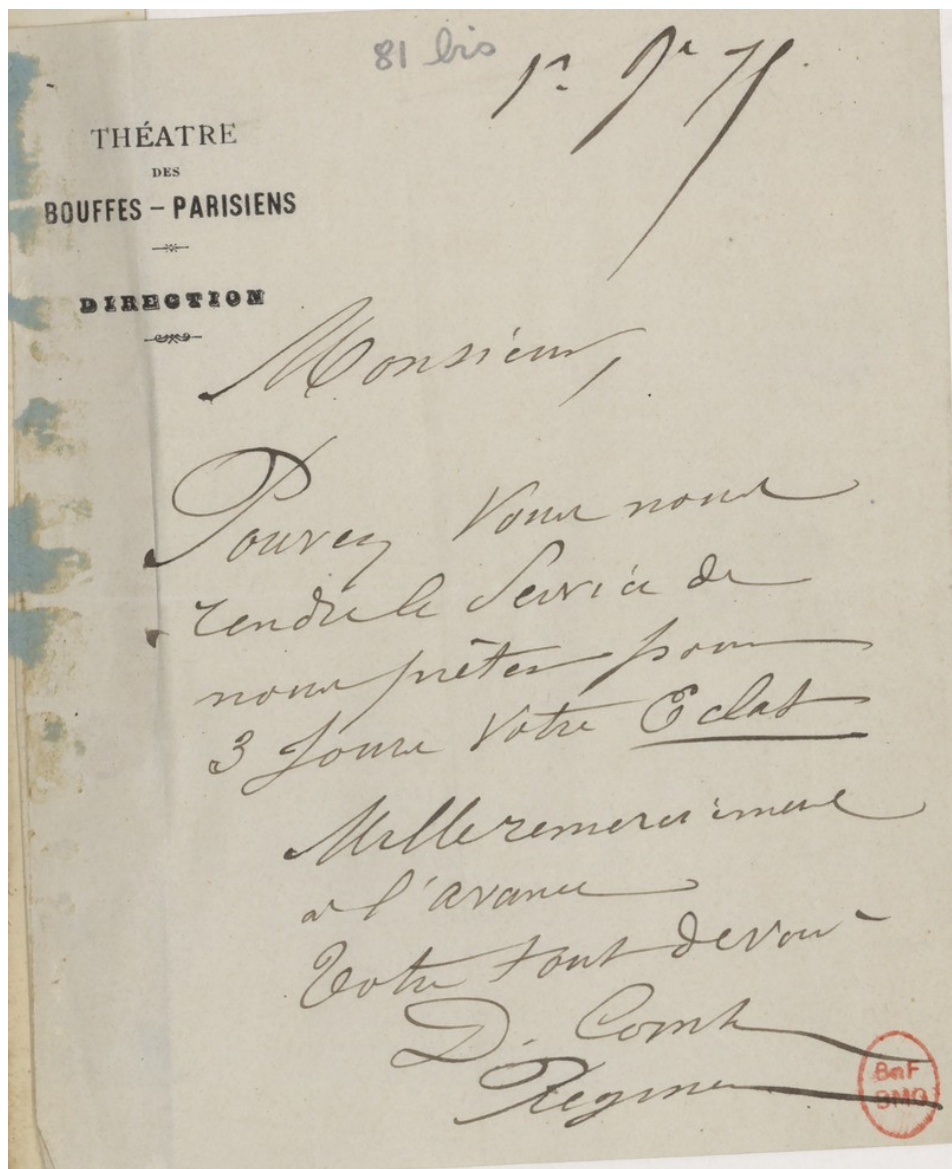 81 bis
THÉATRE
DES
BOUFFES – PARISIENS
DIRECTION
Monsieur,
Pouvez Vous nous
rendre le Service de
nous prêter pour
3 Jours Votre Eclat
Mille remerciments
a l'avance
Votre tout dévoué
D. Comte
BnF
BMO